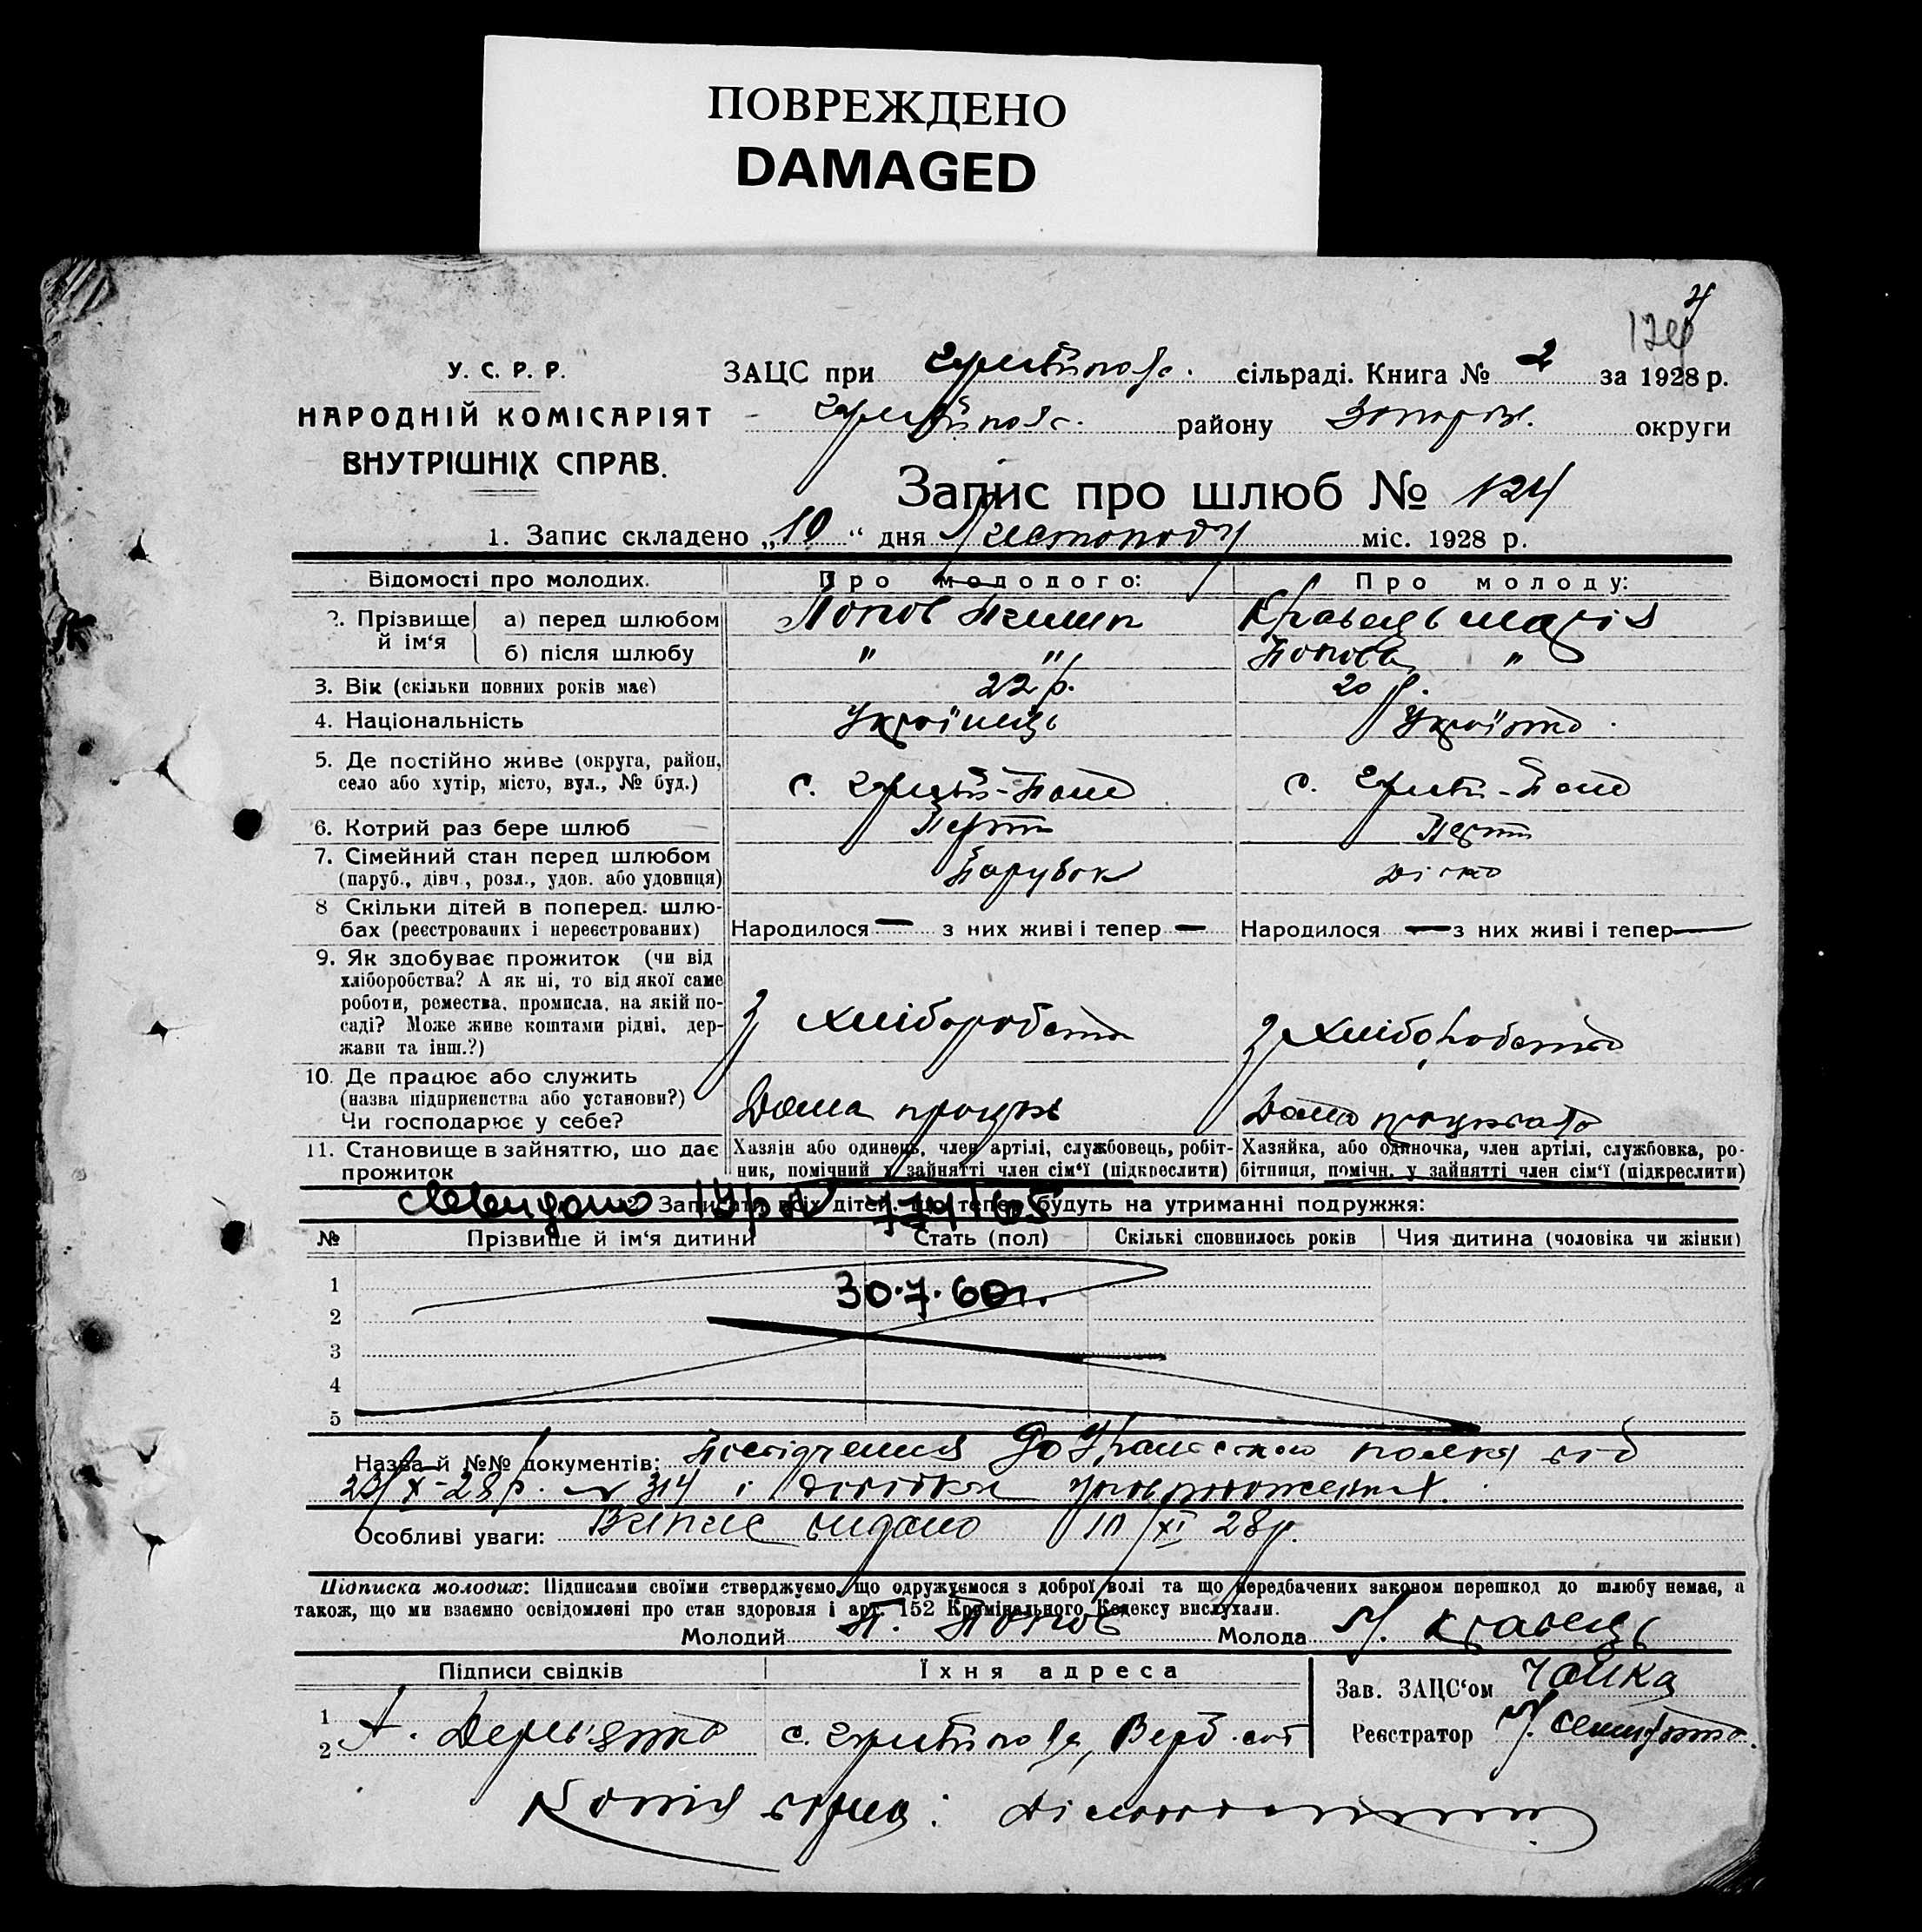 ПОВРЕЖДЕНО
DAMAGED
4
124
У. С. Р. Р.
НАРОДНІЙ КОМІСАРІЯТ
ВНУТРІШНІХ СПРАВ.
ЗАЦС при Гуляйпольс. сільраді. Книга № 2 за 1928 р.
Гуляйпольс. району Запоріз. округи
Запис про шлюб № 124
1. Запис складено „10“ дня Листопаду міс. 1928 р.
Відомості про молодих. Про молодого: Про молоду:
2. Прізвище й ім‘я а) перед шлюбом Попов Кравець Марія
б) після шлюбу " " Попова "
3. Вік (скільки повних років має) 22 р. 20 р.
4. Національність Українець Українка
5. Де постійно живе (округа, район, село або хутір, місто, вул., № буд.) с. Гуляй-Поле с. Гуляй-Поле
6. Котрий раз бере шлюб Перш Перш
7. Сімейний стан перед шлюбом (паруб., дівч., розл., удов. або удовиця) Парубок
8 Скільки дітей в поперед. шлюбах (реєстрованих і нереєстрованих) Народилося — з них живі і тепер — Народилося — з них живі і тепер —
9. Як здобуває прожиток (чи від хліборобства? А як ні, то від якої саме роботи, ремества, промисла, на якій посаді? Може живе коштами рідні, держави та інш.?) З хліборобства З хліборобства
10. Де працює або служить (назва підприємства або установи?) Чи господарює у себе? Дома працює Дома
11. Становище в зайняттю, що дає прожиток Хазяін або одинець, член артілі, службовець, робітник, помічний у зайнятті член сім‘ї (підкреслити) Хазяйка, або одиночка, член артілі, службовка, робітниця, помічн. у зайнятті член сім‘ї (підкреслити)
12. Записати всіх дітей, що тепер будуть на утриманні подружжя:
№ Прізвище й ім‘я дитини Стать (пол) Скількі сповнилось років Чия дитина (чоловіка чи жінки)
1
30.7.60г.
2
3
4
5
Назва й №№ документів: Посвідчення від
23/X-28р. № 314 і довідка
Особливі уваги: Випис видано 10/XI 28р.
Підписка молодих: Підписами своїми стверджуємо, що одружуємося з доброї волі та що передбачених законом перешкод до шлюбу немає, а
також, що ми взаємно освідомлені про стан здоровля і арт. 152 Кримінального Кодексу вислухали.
Молодий П. Попов Молода М. Кравець
Підписи свідків Їхня адреса Зав. ЗАЦС‘ом Чайка
1
2 А. Дерев'янко с. Гуляйполе, Верб. Реєстратор
Копія вірна: Діловод